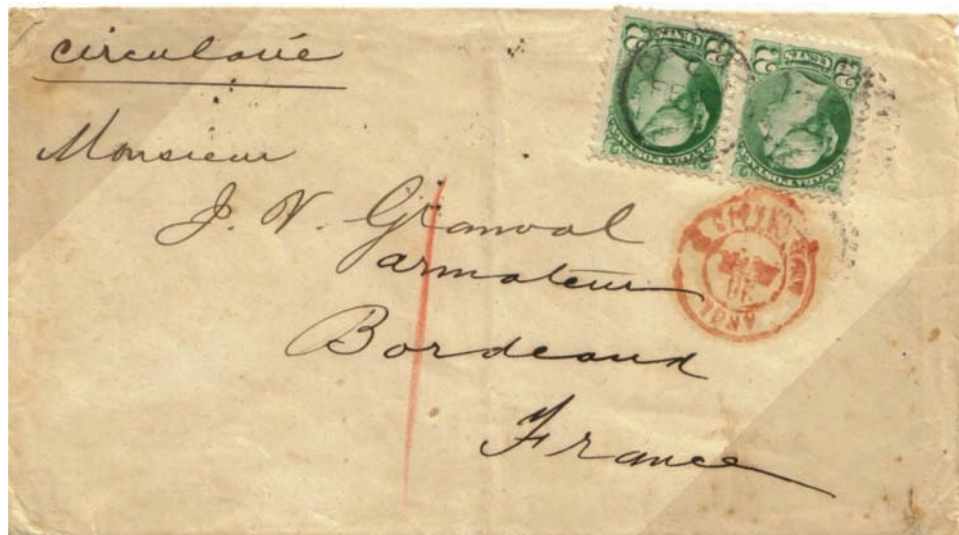 circulaire
Monsieur
J. V. Granval
armateur
Bordeaux
France
2 CENTS 2
CANADA POSTAGE
2 CENTS 2
CANADA POSTAGE
ANGL.